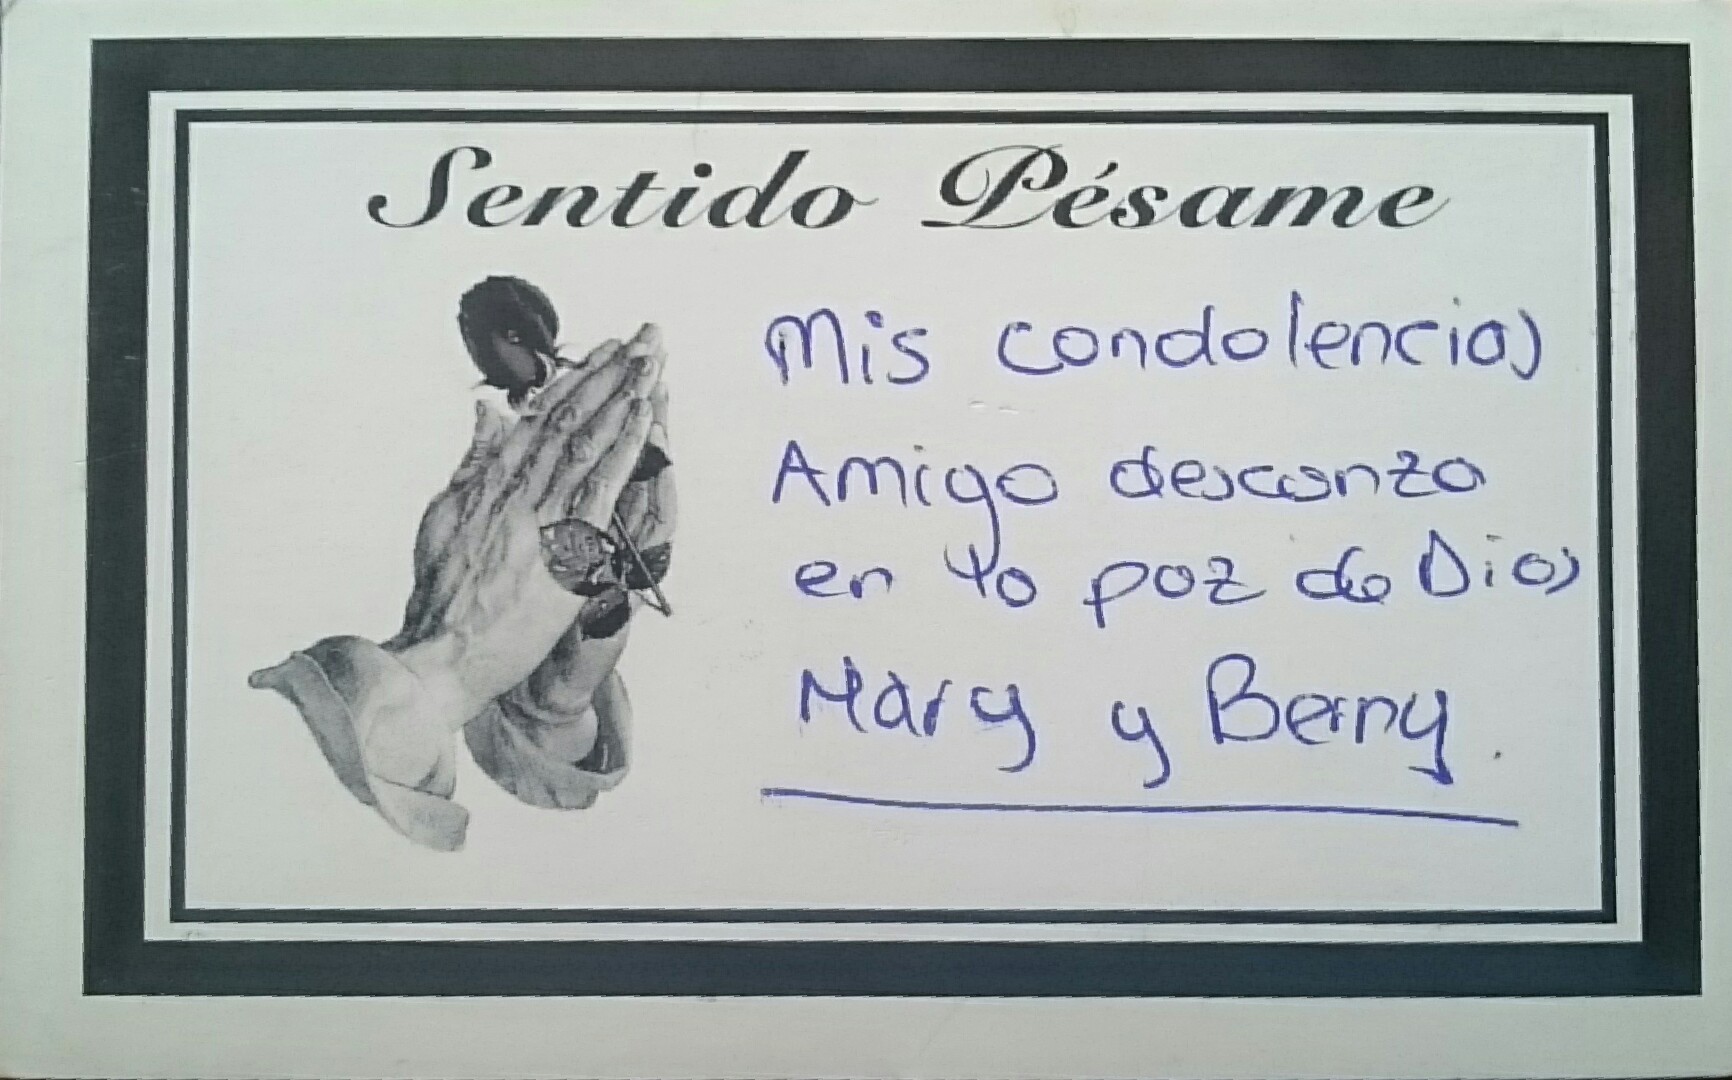 Sentido Pésame
Mis condolencias
Amigo descanza
en la paz de Dios
Mary y Berny.